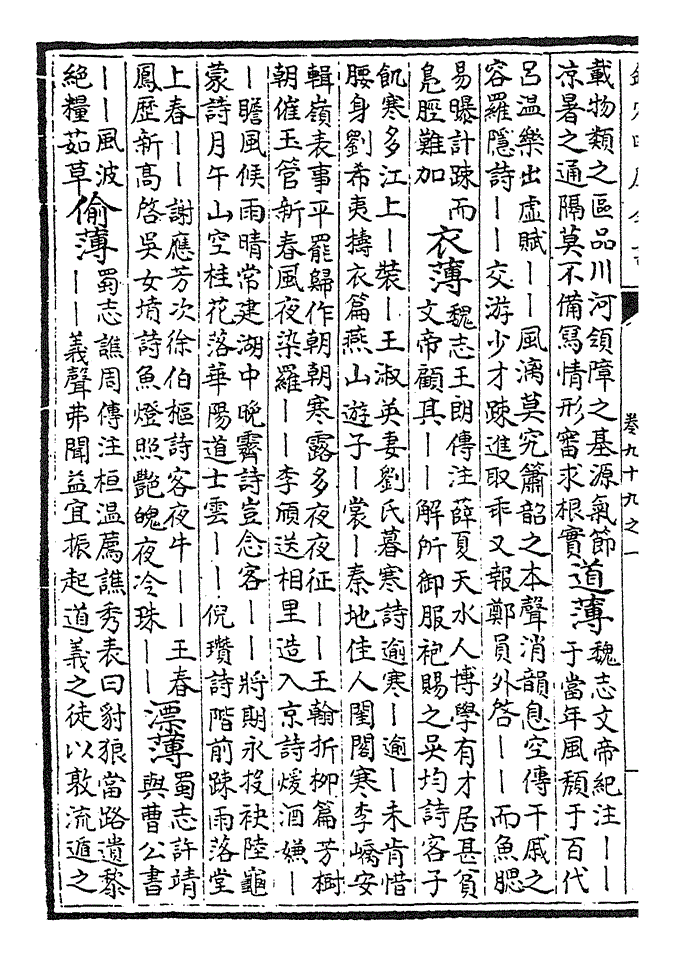 卷九十九之一
載物類之區品川河領障之基源氣節
凉暑之通隔莫不備寫情形審求根實
道薄
魏志文帝紀注丨丨
于當年風頽于百代
呂温樂出虛賦丨丨風漓莫究簫韶之本聲消韻息空傳干戚之
容羅隱詩丨丨交游少才踈進取乖又報鄭員外啓丨丨而魚腮
易曝計踈而
鳬脛難加
衣薄
魏志王朗傳注薛夏天水人博學有才居甚貧
文帝顧其丨丨解所御服袍賜之吳均詩客子
飢寒多江上丨裝丨王淑英妻劉氏暮寒詩逾寒丨逾丨未肯惜
腰身劉希夷擣衣篇燕山遊子丨裳丨秦地佳人閨閤寒李嶠安
輯嶺表事平罷歸作朝朝寒露多夜夜征丨丨王翰折柳篇芳樹
朝催玉管新春風夜染羅丨丨李頎送相里造入京詩煖酒嫌丨
丨瞻風候雨晴常建湖中晚霽詩豈念客丨丨將期永投袂陸龜
蒙詩月午山空桂花落華陽道士雲丨丨倪瓚詩階前踈雨落堂
上春丨丨謝應芳次徐伯樞詩客夜牛丨丨王春
鳳歷新高啓吳女墳詩魚燈照艷魄夜冷珠丨丨
漂薄
蜀志許靖
與曹公書
丨丨風波
絕糧茹草
偷薄
蜀志譙周傳注桓温薦譙秀表曰豺狼當路遺黎
丨丨義聲弗聞益宜振起道義之徒以敦流遁之